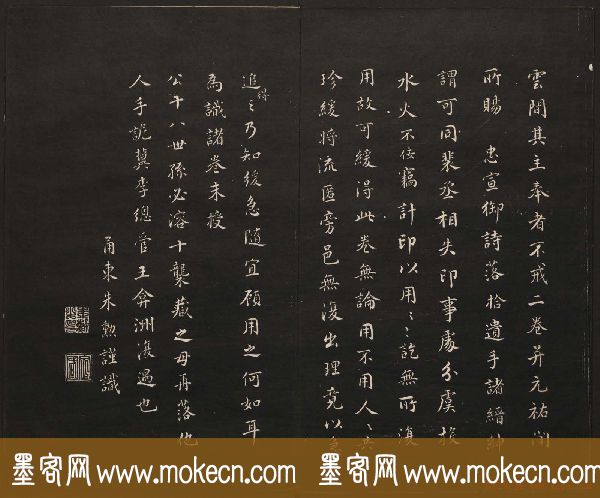 雲間其主奉者不戒二卷并元祐間
所賜 忠宣御詩落拾遺手諸縉紳
謂可同裴丞相失印事處分虞投
水火不佞竊計印以用〻訖無所復
用故可緩得此卷無論用不用人〻共
珍緩將流匿旁邑無復出理竟以
追得之乃知緩急隨宜顧用之何如耳
為識諸卷末授
公十八世孫必溶十襲藏之毋再落他
人手詭冀李總管王弇洲復過也
甬東朱勲謹識
墨客网 www.mokecn.com 墨客网 www.mokecn.com